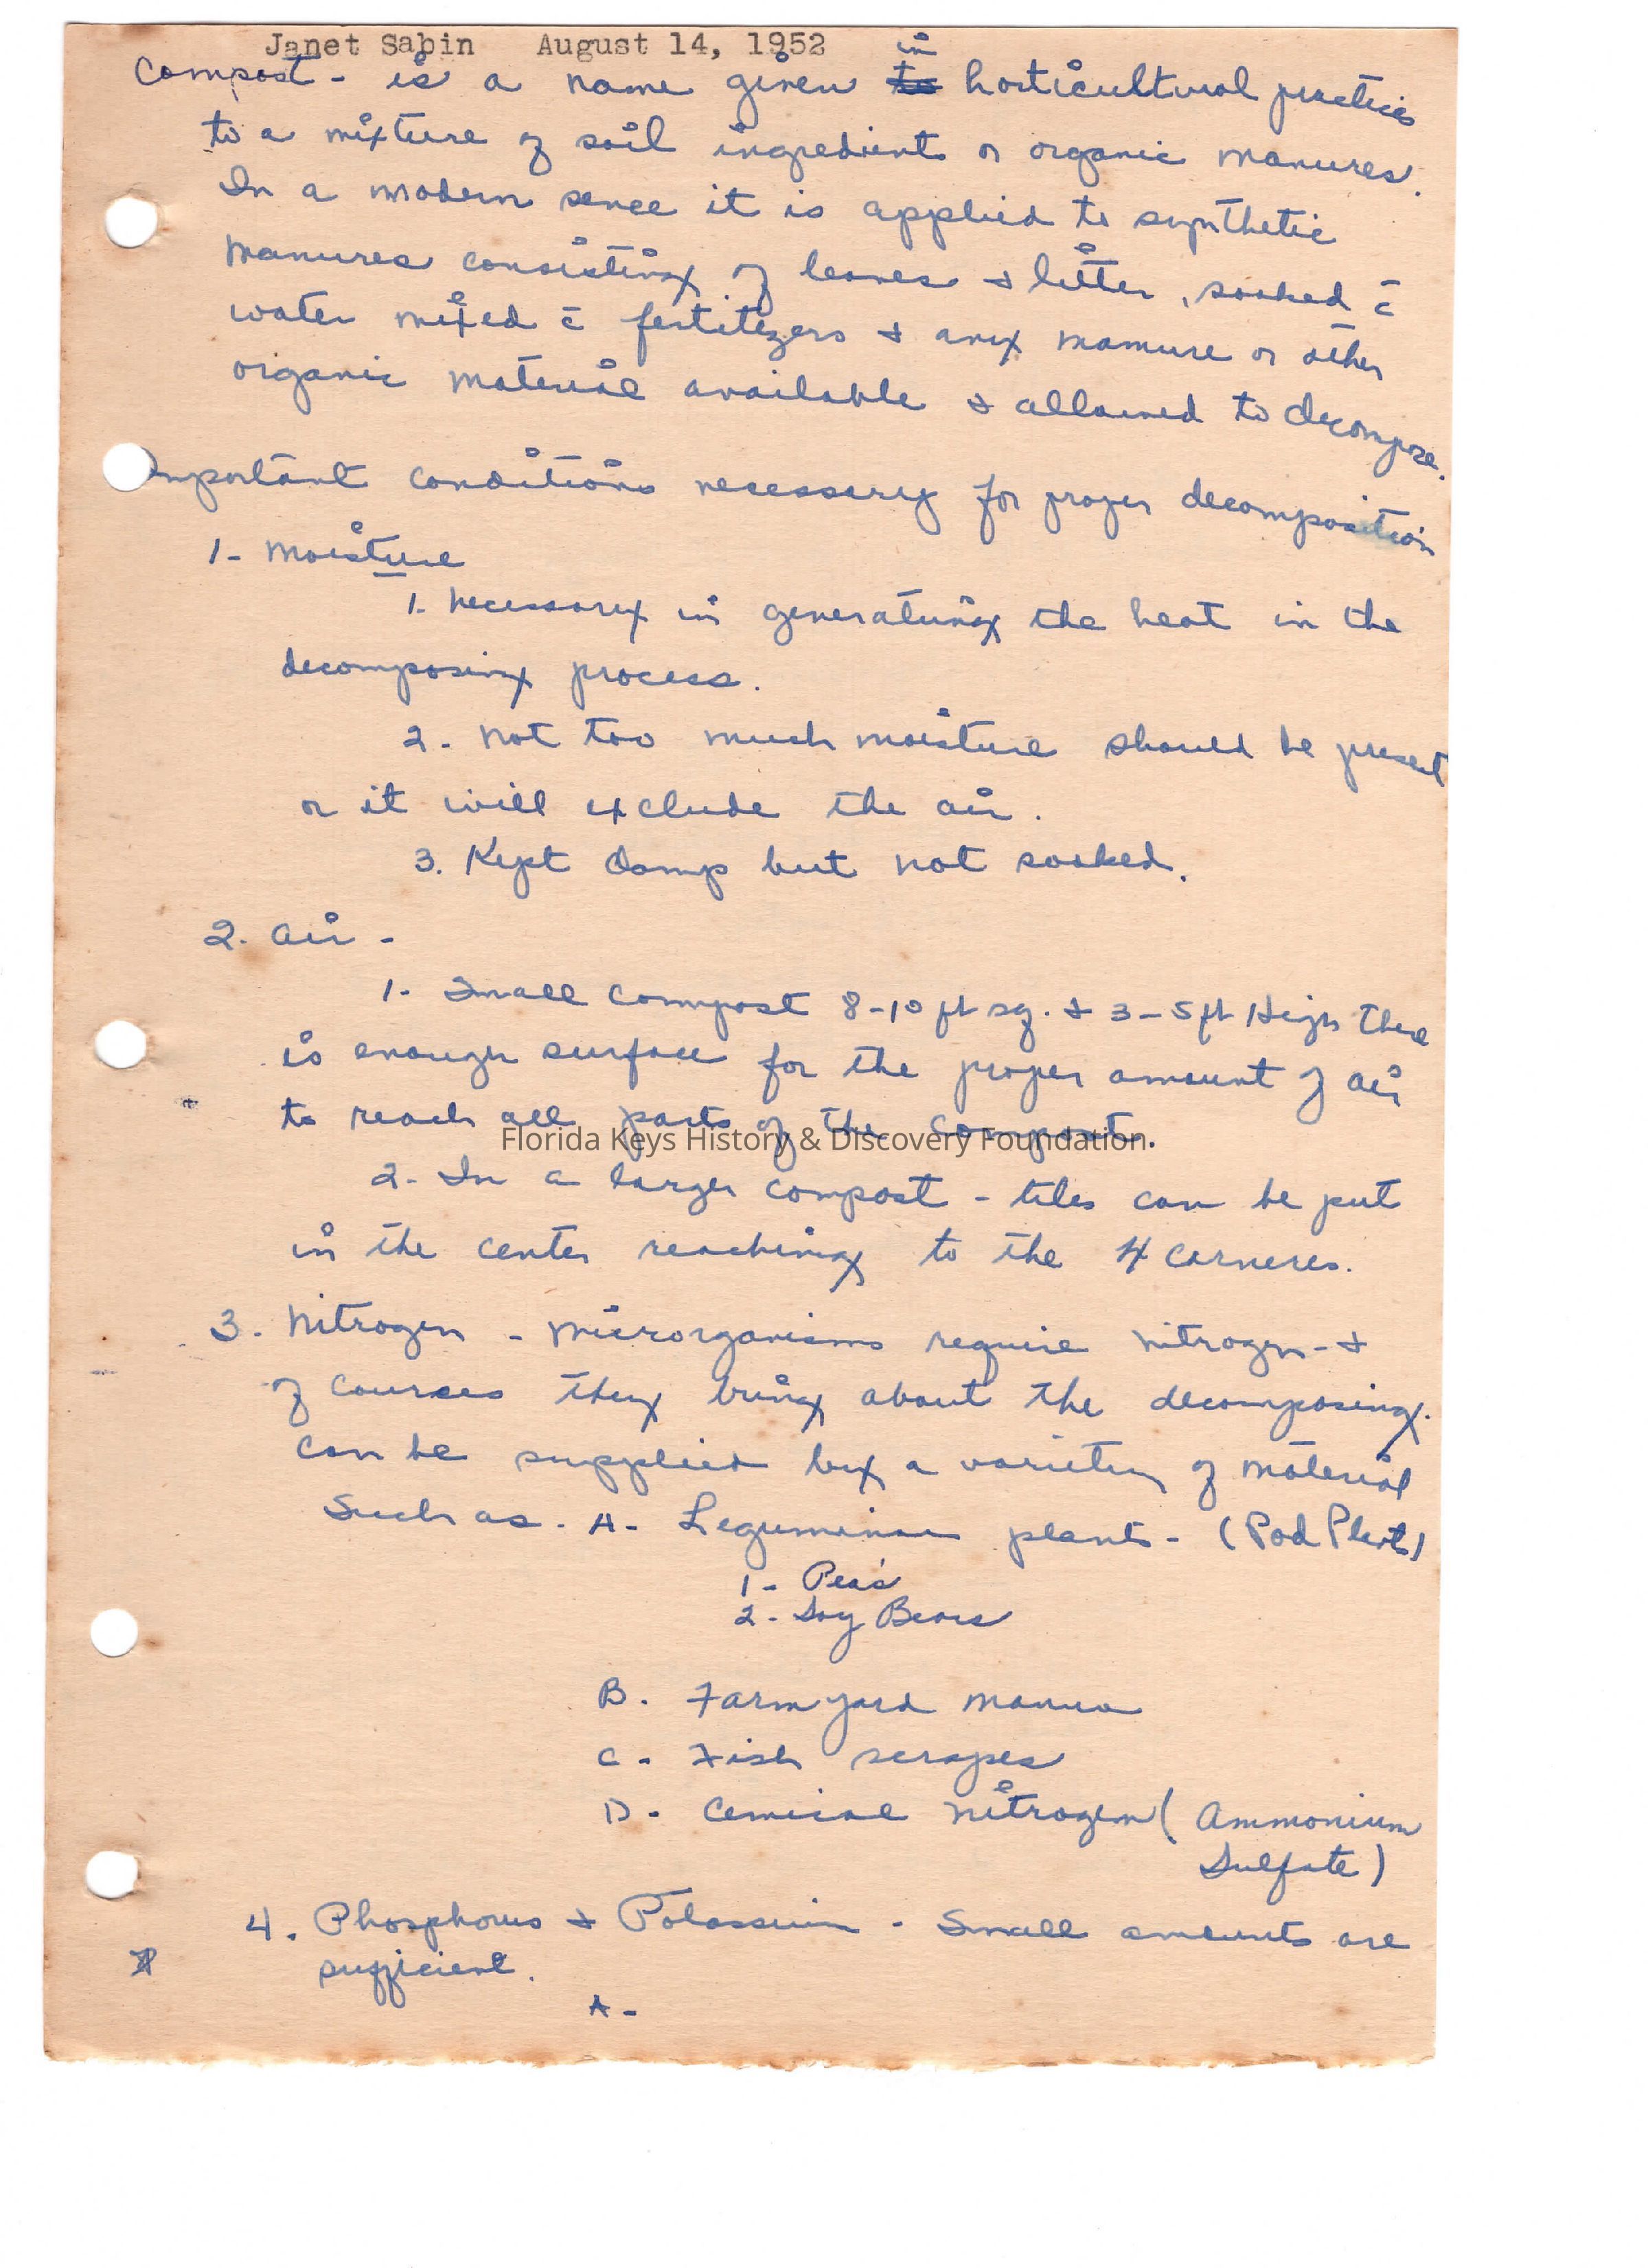 Janet Sabin August 14, 1952
Compost - is a name given in to horticultural practices
to a mixture of soil ingredients or organic manures.
In a modern sence it is applied to synthetic
manures consisting of leaves & litter, soaked c̄
water mixed c̄ fertitizers & any manure or other
organic material available & allowed to decompose.
Important conditions necessary for proper decomposition
1- moisture
1. necessary in generating the heat in the
decomposing process.
2. not too much moisture should be present
or it will exclude the air.
3. Kept damp but not soaked.
2. air -
1- Small compost 8-10 ft sq. & 3-5 ft High there
is enough surface for the proper amount of air
to reach all parts of the compost.
Florida Keys History & Discovery Foundation
2- In a larger compost - tiles can be put
in the center reaching to the 4 corneres.
3. Nitrogen - microrganisms require nitrogen - &
of courses they bring about the decomposing.
can be supplied by a variety of material
Such as. A- Leguminous plants - (Pod Plants)
1- Pea's
2- Soy Beans
B. Farm yard manure
C- Fish scrapes
D- Cemical nitrogen (Ammonium
Sulfate)
4. Phosphorus & Potassium - Small amounts are
sufficient.
A-